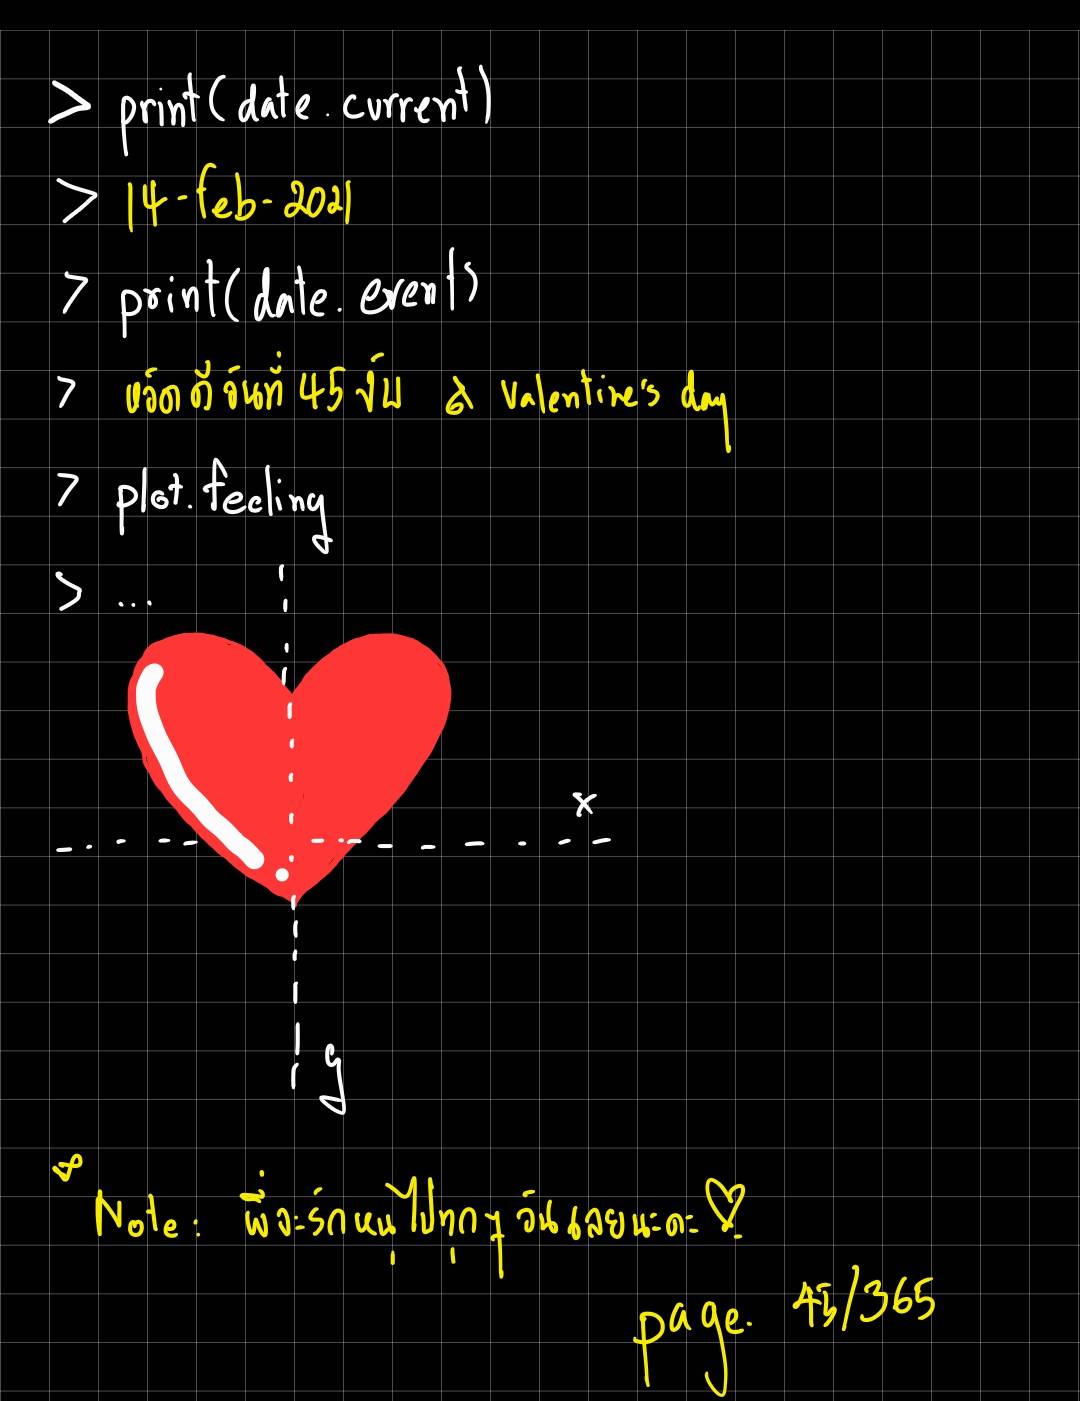 > print(date.current)
> 14-feb-2021
> print(date.event)
> หวัดดีวันที่ 45 งับ & Valentine's day
> plot.feeling
> ...
x
y
* Note: พี่จะรักหนูไปทุกๆ วันเลยนะคะ ♡
page. 45/365